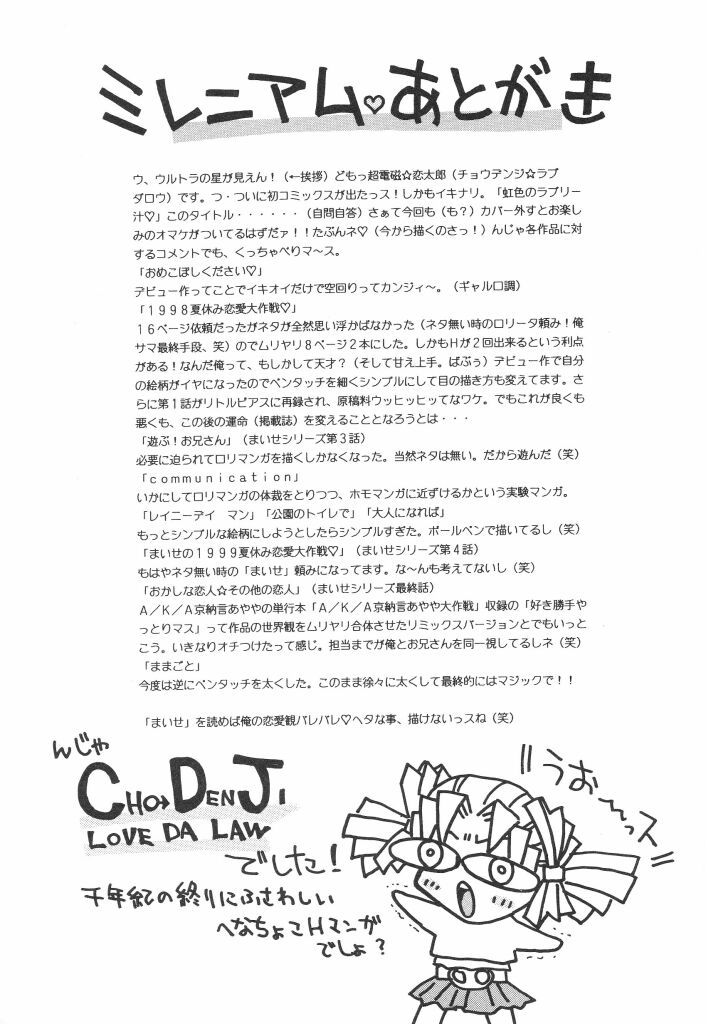 ミレニアム♡あとがき
ウ、ウルトラの星が見えん！（←挨拶）どもっ超電磁☆恋太郎（チョウデンジ☆ラブ
ダロウ）です。つ・ついに初コミックスが出たっス！しかもイキナリ。「虹色のラブリー
汁♡」このタイトル・・・・・・（自問自答）さぁて今回も（も？）カバー外すとお楽し
みのオマケがついてるはずだァ！！たぶんネ♡（今から描くのさっ！）んじゃ各作品に対
するコメントでも、くっちゃべりマ～ス。
「おめこぼしください♡」
デビュー作ってことでイキオイだけで空回りってカンジィ～。（ギャル口調）
「１９９８夏休み恋愛大作戦♡」
１６ページ依頼だったがネタが全然思い浮かばなかった（ネタ無い時のロリータ頼み！俺
サマ最終手段、笑）のでムリヤリ８ページ２本にした。しかもＨが２回出来るという利点
がある！なんだ俺って、もしかして天才？（そして甘え上手。ばぶぅ）デビュー作で自分
の絵柄がイヤになったのでペンタッチを細くシンプルにして目の描き方も変えてます。さ
らに第１話がリトルピアスに再録され、原稿料ウッヒッヒッてなワケ。でもこれが良くも
悪くも、この後の運命（掲載誌）を変えることとなろうとは・・・
「遊ぶ！お兄さん」（まいせシリーズ第３話）
必要に迫られてロリマンガを描くしかなくなった。当然ネタは無い。だから遊んだ（笑）
「ｃｏｍｍｕｎｉｃａｔｉｏｎ」
いかにしてロリマンガの体裁をとりつつ、ホモマンガに近ずけるかという実験マンガ。
「レイニーデイ　マン」「公園のトイレで」「大人になれば」
もっとシンプルな絵柄にしようとしたらシンプルすぎた。ボールペンで描いてるし（笑）
「まいせの１９９９夏休み恋愛大作戦♡」（まいせシリーズ第４話）
もはやネタ無い時の「まいせ」頼みになってます。な～んも考えてないし（笑）
「おかしな恋人☆その他の恋人」（まいせシリーズ最終話）
Ａ／Ｋ／Ａ京納言あややの単行本「Ａ／Ｋ／Ａ京納言あやや大作戦」収録の「好き勝手や
っとりマス」って作品の世界観をムリヤリ合体させたリミックスバージョンとでもいっと
こう。いきなりオチつけたって感じ。担当までが俺とお兄さんを同一視してるしネ（笑）
「ままごと」
今度は逆にペンタッチを太くした。このまま徐々に太くして最終的にはマジックで！！
「まいせ」を読めば俺の恋愛観バレバレ♡ヘタな事、描けないっスね（笑）
んじゃ
CHO→DENJI
LOVE DA LAW
でした！
千年紀の終りにふさわしい
へなちょこＨマンガ
でしょ？
うお～っス